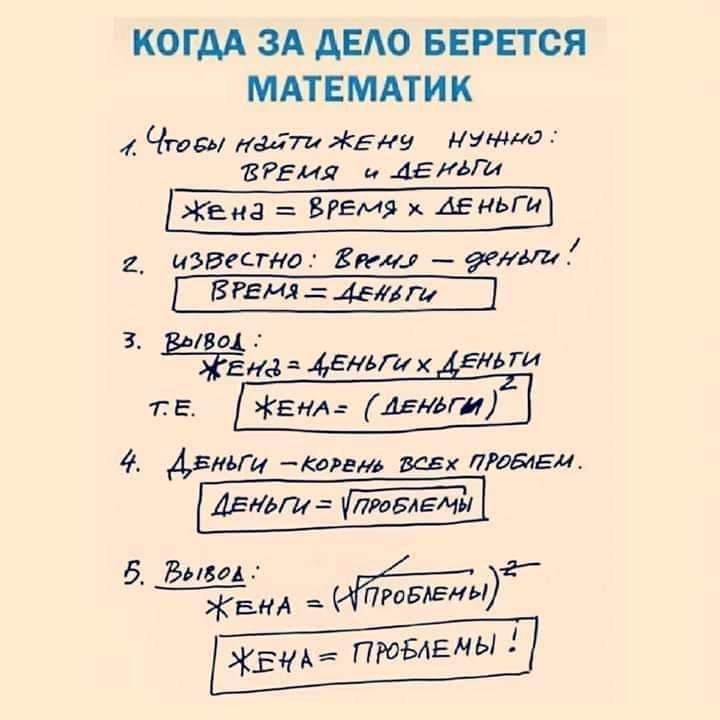 КОГДА ЗА ДЕЛО БЕРЕТСЯ
МАТЕМАТИК
1. Чтобы найти жену нужно:
ВРЕМЯ и ДЕНЬГИ
Жена = ВРЕМЯ x ДЕНЬГИ
2. известно: Время – деньги!
ВРЕМЯ = ДЕНЬГИ
3. Вывод:
Жена = ДЕНЬГИ x ДЕНЬГИ
Т.Е. ЖЕНА = (ДЕНЬГИ)²
4. ДЕНЬГИ – КОРЕНЬ ВСЕХ ПРОБЛЕМ.
ДЕНЬГИ = √ПРОБЛЕМЫ
5. Вывод:
ЖЕНА = (√ПРОБЛЕМЫ)²
ЖЕНА = ПРОБЛЕМЫ!